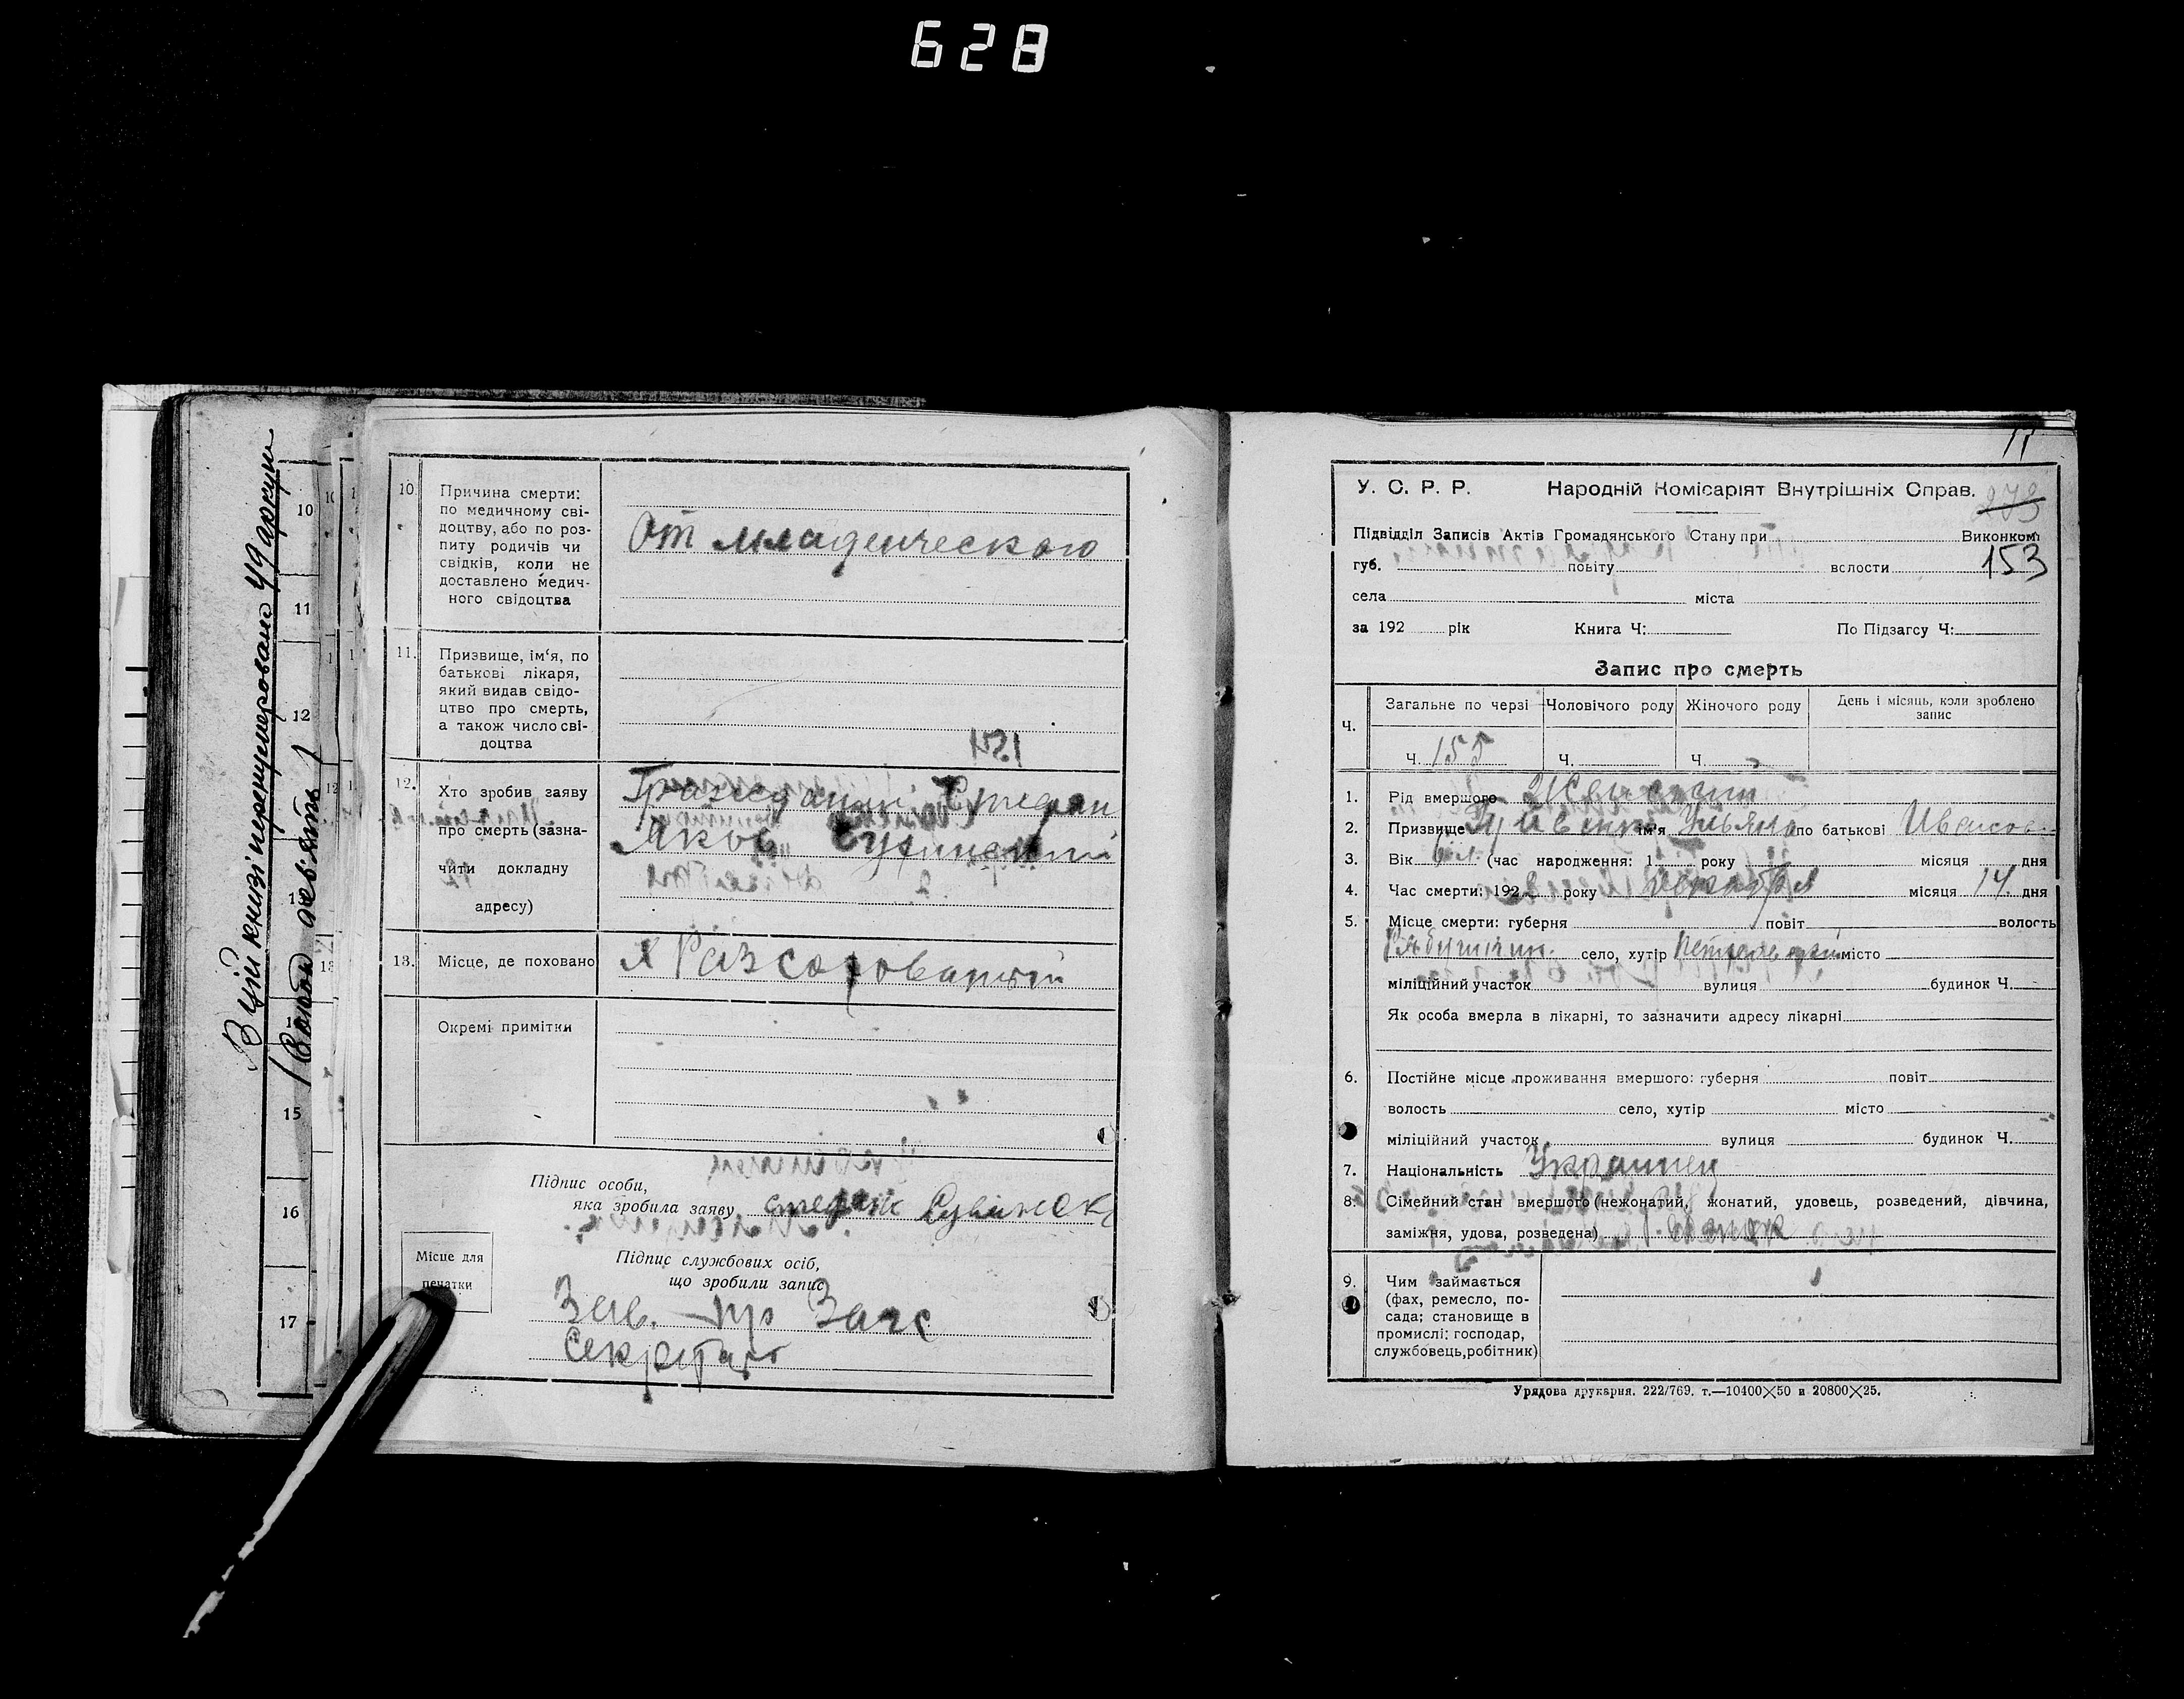 628
В цій книзі перенумеровано 49 аркуш
(сорок дев'ять)
10
11
12
15
16
17
10. Причина смерти:
по медичному сві-
доцтву, або по роз-
питу родичів чи
свідків, коли не
доставлено медич-
ного свідоцтва
От младенческого
11. Призвище, ім'я, по
батькові лікаря,
який видав свідо-
цтво про смерть,
а також число сві-
доцтва
12. Хто зробив заяву
про смерть (зазна-
чити докладну
адресу)
Гражданин Стефан
Яков
13. Місце, де поховано
Окремі примітки
Підпис особи,
яка зробила заяву стефан
Підпис службових осіб,
що зробили запис
Місце для
печатки
Зав. Загс
Секретарь
17
У. С. Р. Р. Народній Комісаріят Внутрішніх Справ.
273
Підвідділ Записів Актів Громадянського Стану при Виконком
губ. повіту волости 153
села міста
за 192 рік Книга Ч: По Підзагсу Ч:
Запис про смерть
Ч. Загальне по черзі Чоловічого роду Жіночого роду День і місяць, коли зроблено
запис
Ч. 155 Ч. Ч.
1. Рід вмершого Женский
2. Призвище ім'я Ульяна по батькові Иванова
3. Вік (час народження: 1 року місяця дня
4. Час смерти: 192 року місяця 14 дня
5. Місце смерти: губерня повіт волость
село, хутір місто
міліційний участок вулиця будинок Ч.
Як особа вмерла в лікарні, то зазначити адресу лікарні
6. Постійне місце проживання вмершого: губерня повіт
волость село, хутір місто
міліційний участок вулиця будинок Ч.
7. Національність Украинец
8. Сімейний стан вмершого (нежонатий, жонатий, удовець, розведений, дівчина,
заміжня, удова, розведена)
9. Чим займається
(фах, ремесло, по-
сада; становище в
промислі: господар,
службовець, робітник)
Урядова друкарня. 222/769. т.—10400×50 и 20800×25.